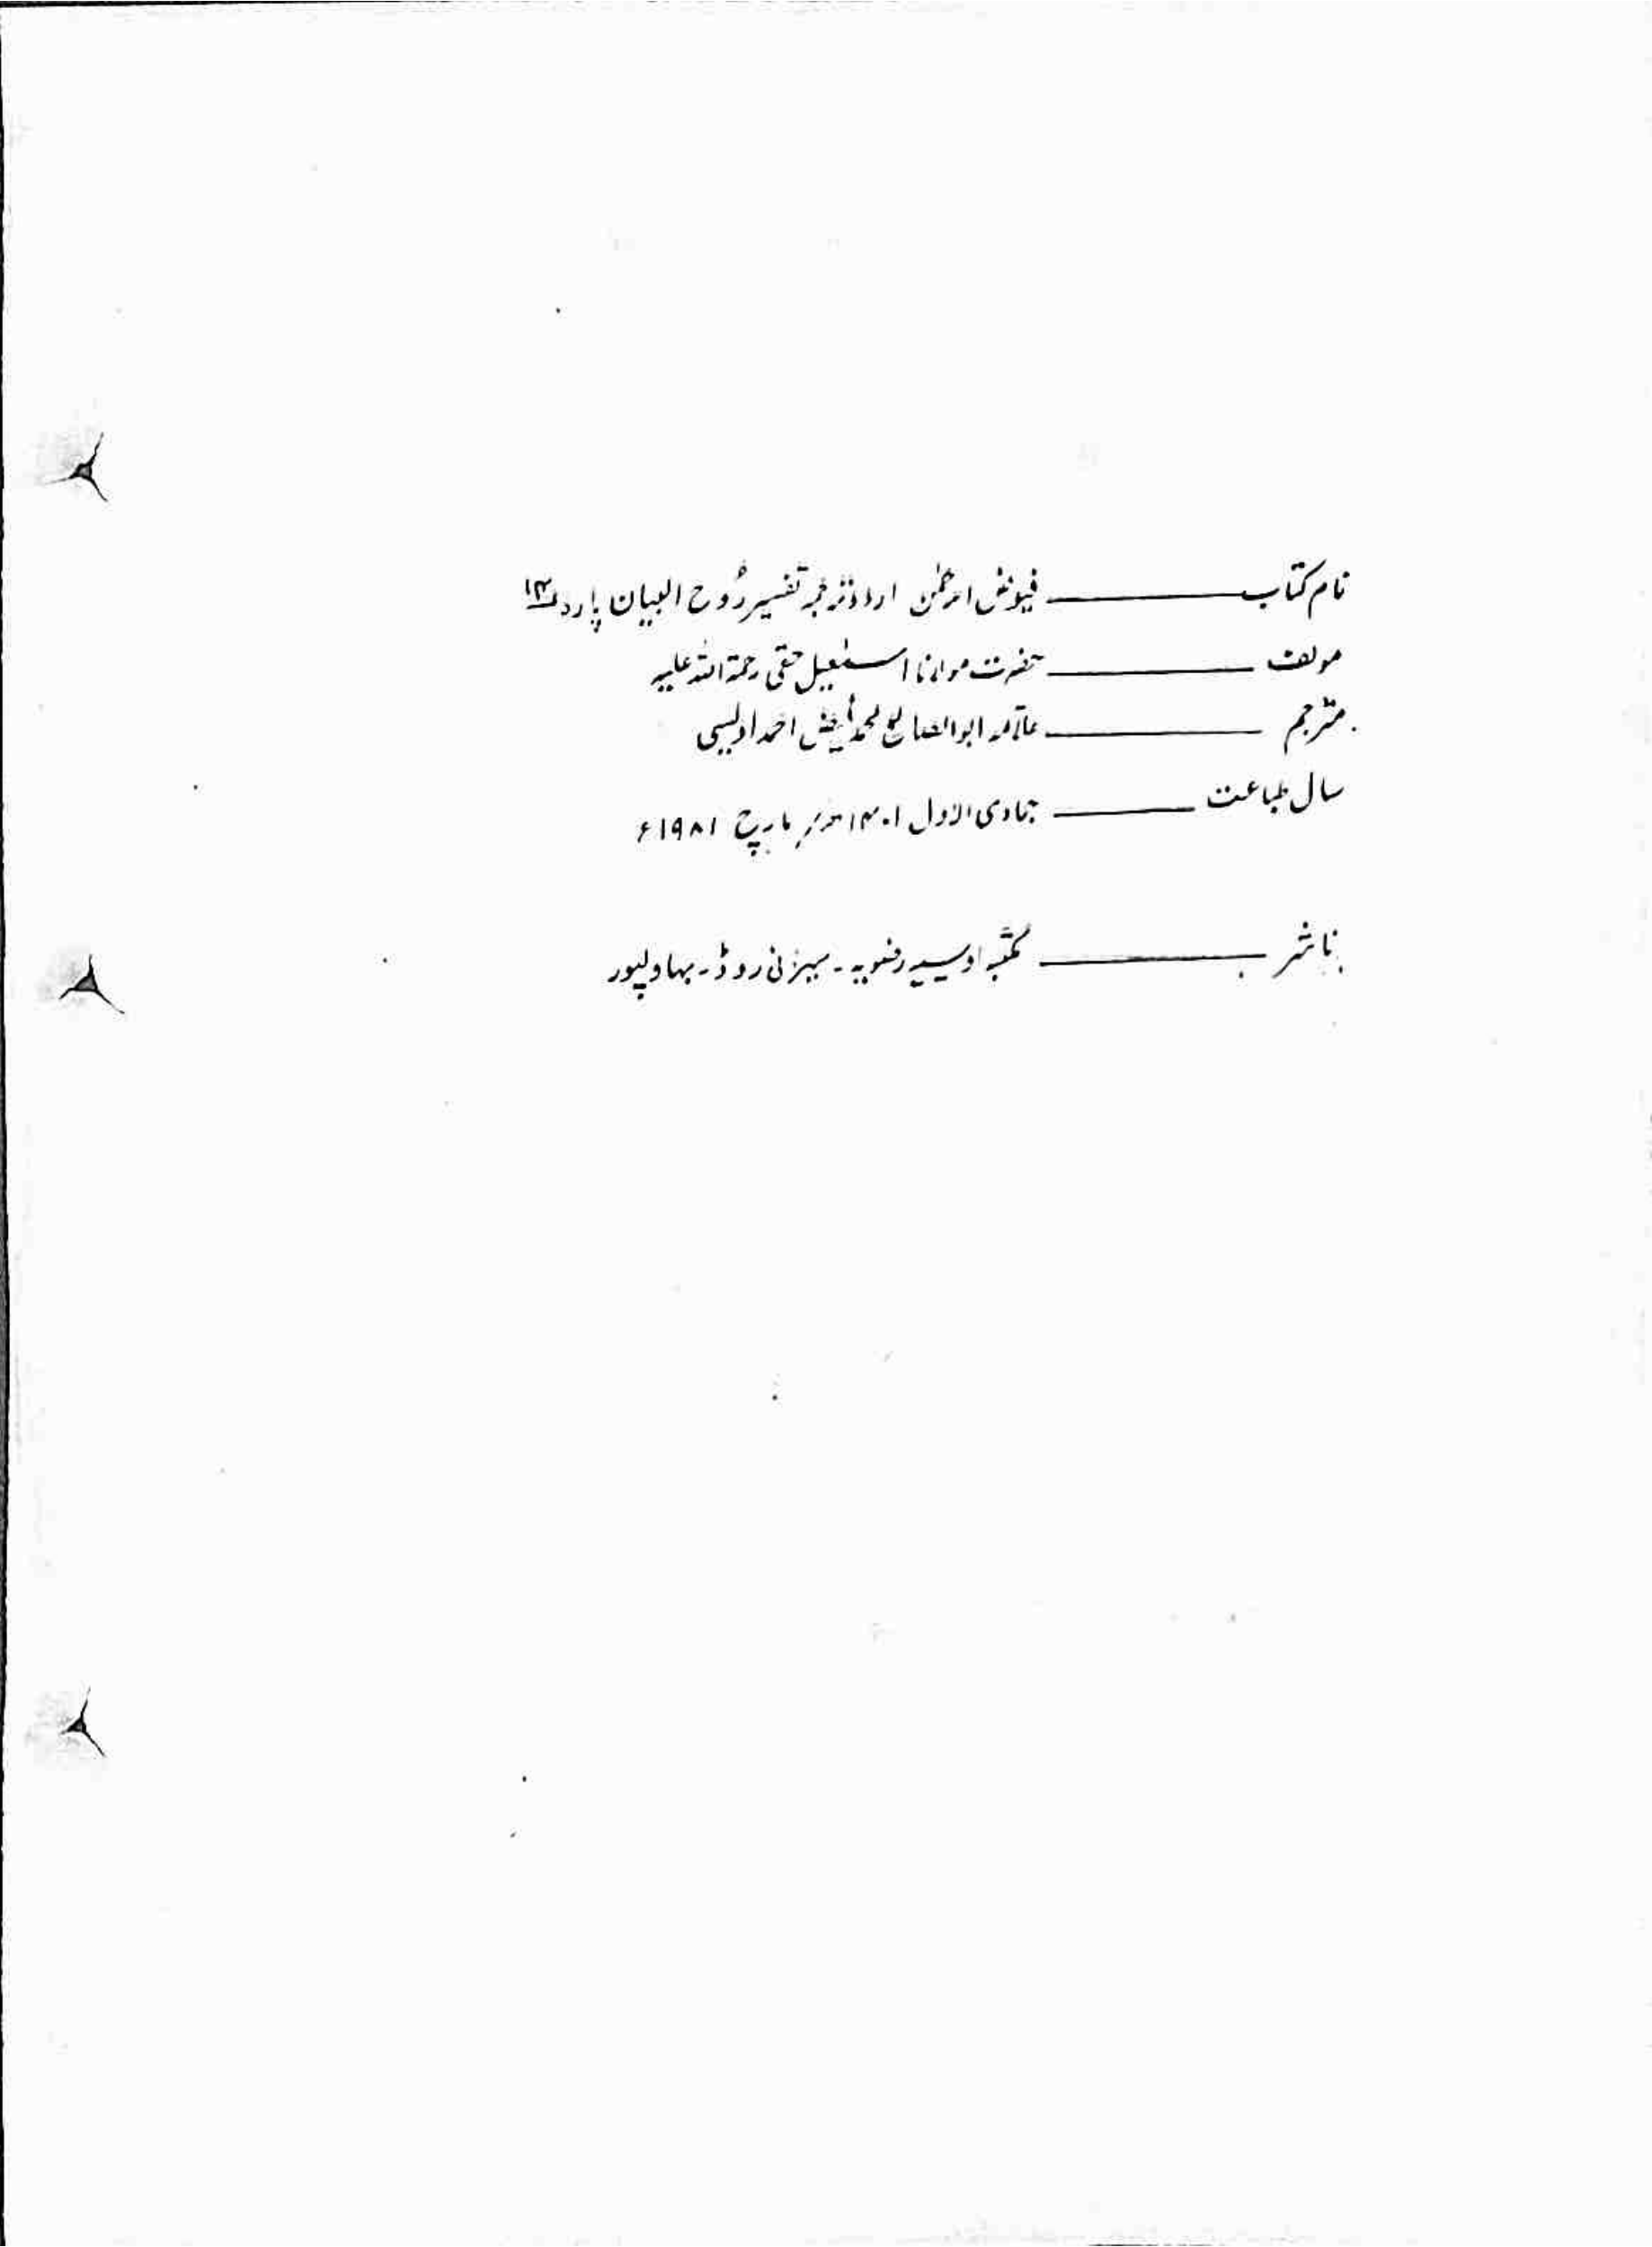 نام کتاب ——— فیوض الرحمٰن اردو ترجمہ تفسیر رُوح البیان پارہ
مولف ——— حضرت مولانا اسمٰعیل حقی رحمۃ اللہ علیہ
مترجم ——— علامہ ابوالصالح محمد فیض احمد اویسی
سال طباعت ——— جمادی الاول ۱۴۰۱ھ مارچ ۱۹۸۱ء
ناشر ——— مکتبہ اویسیہ رضویہ۔ سیرانی روڈ۔ بہاولپور